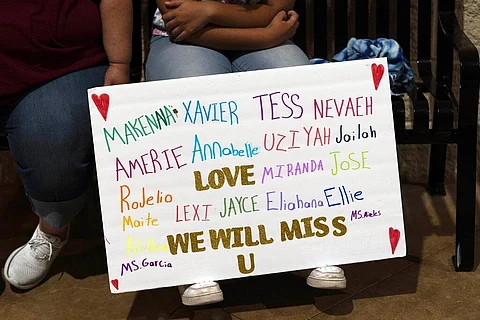 MAKENNA XAVIER TESS NEVAEH
AMERIE Annabelle UZIYAH Jailah
LOVE MIRANDA JOSE
Rodelio LEXI JAYCE Eliahana Ellie
Maite
WE WILL MISS
U
MS. Garcia